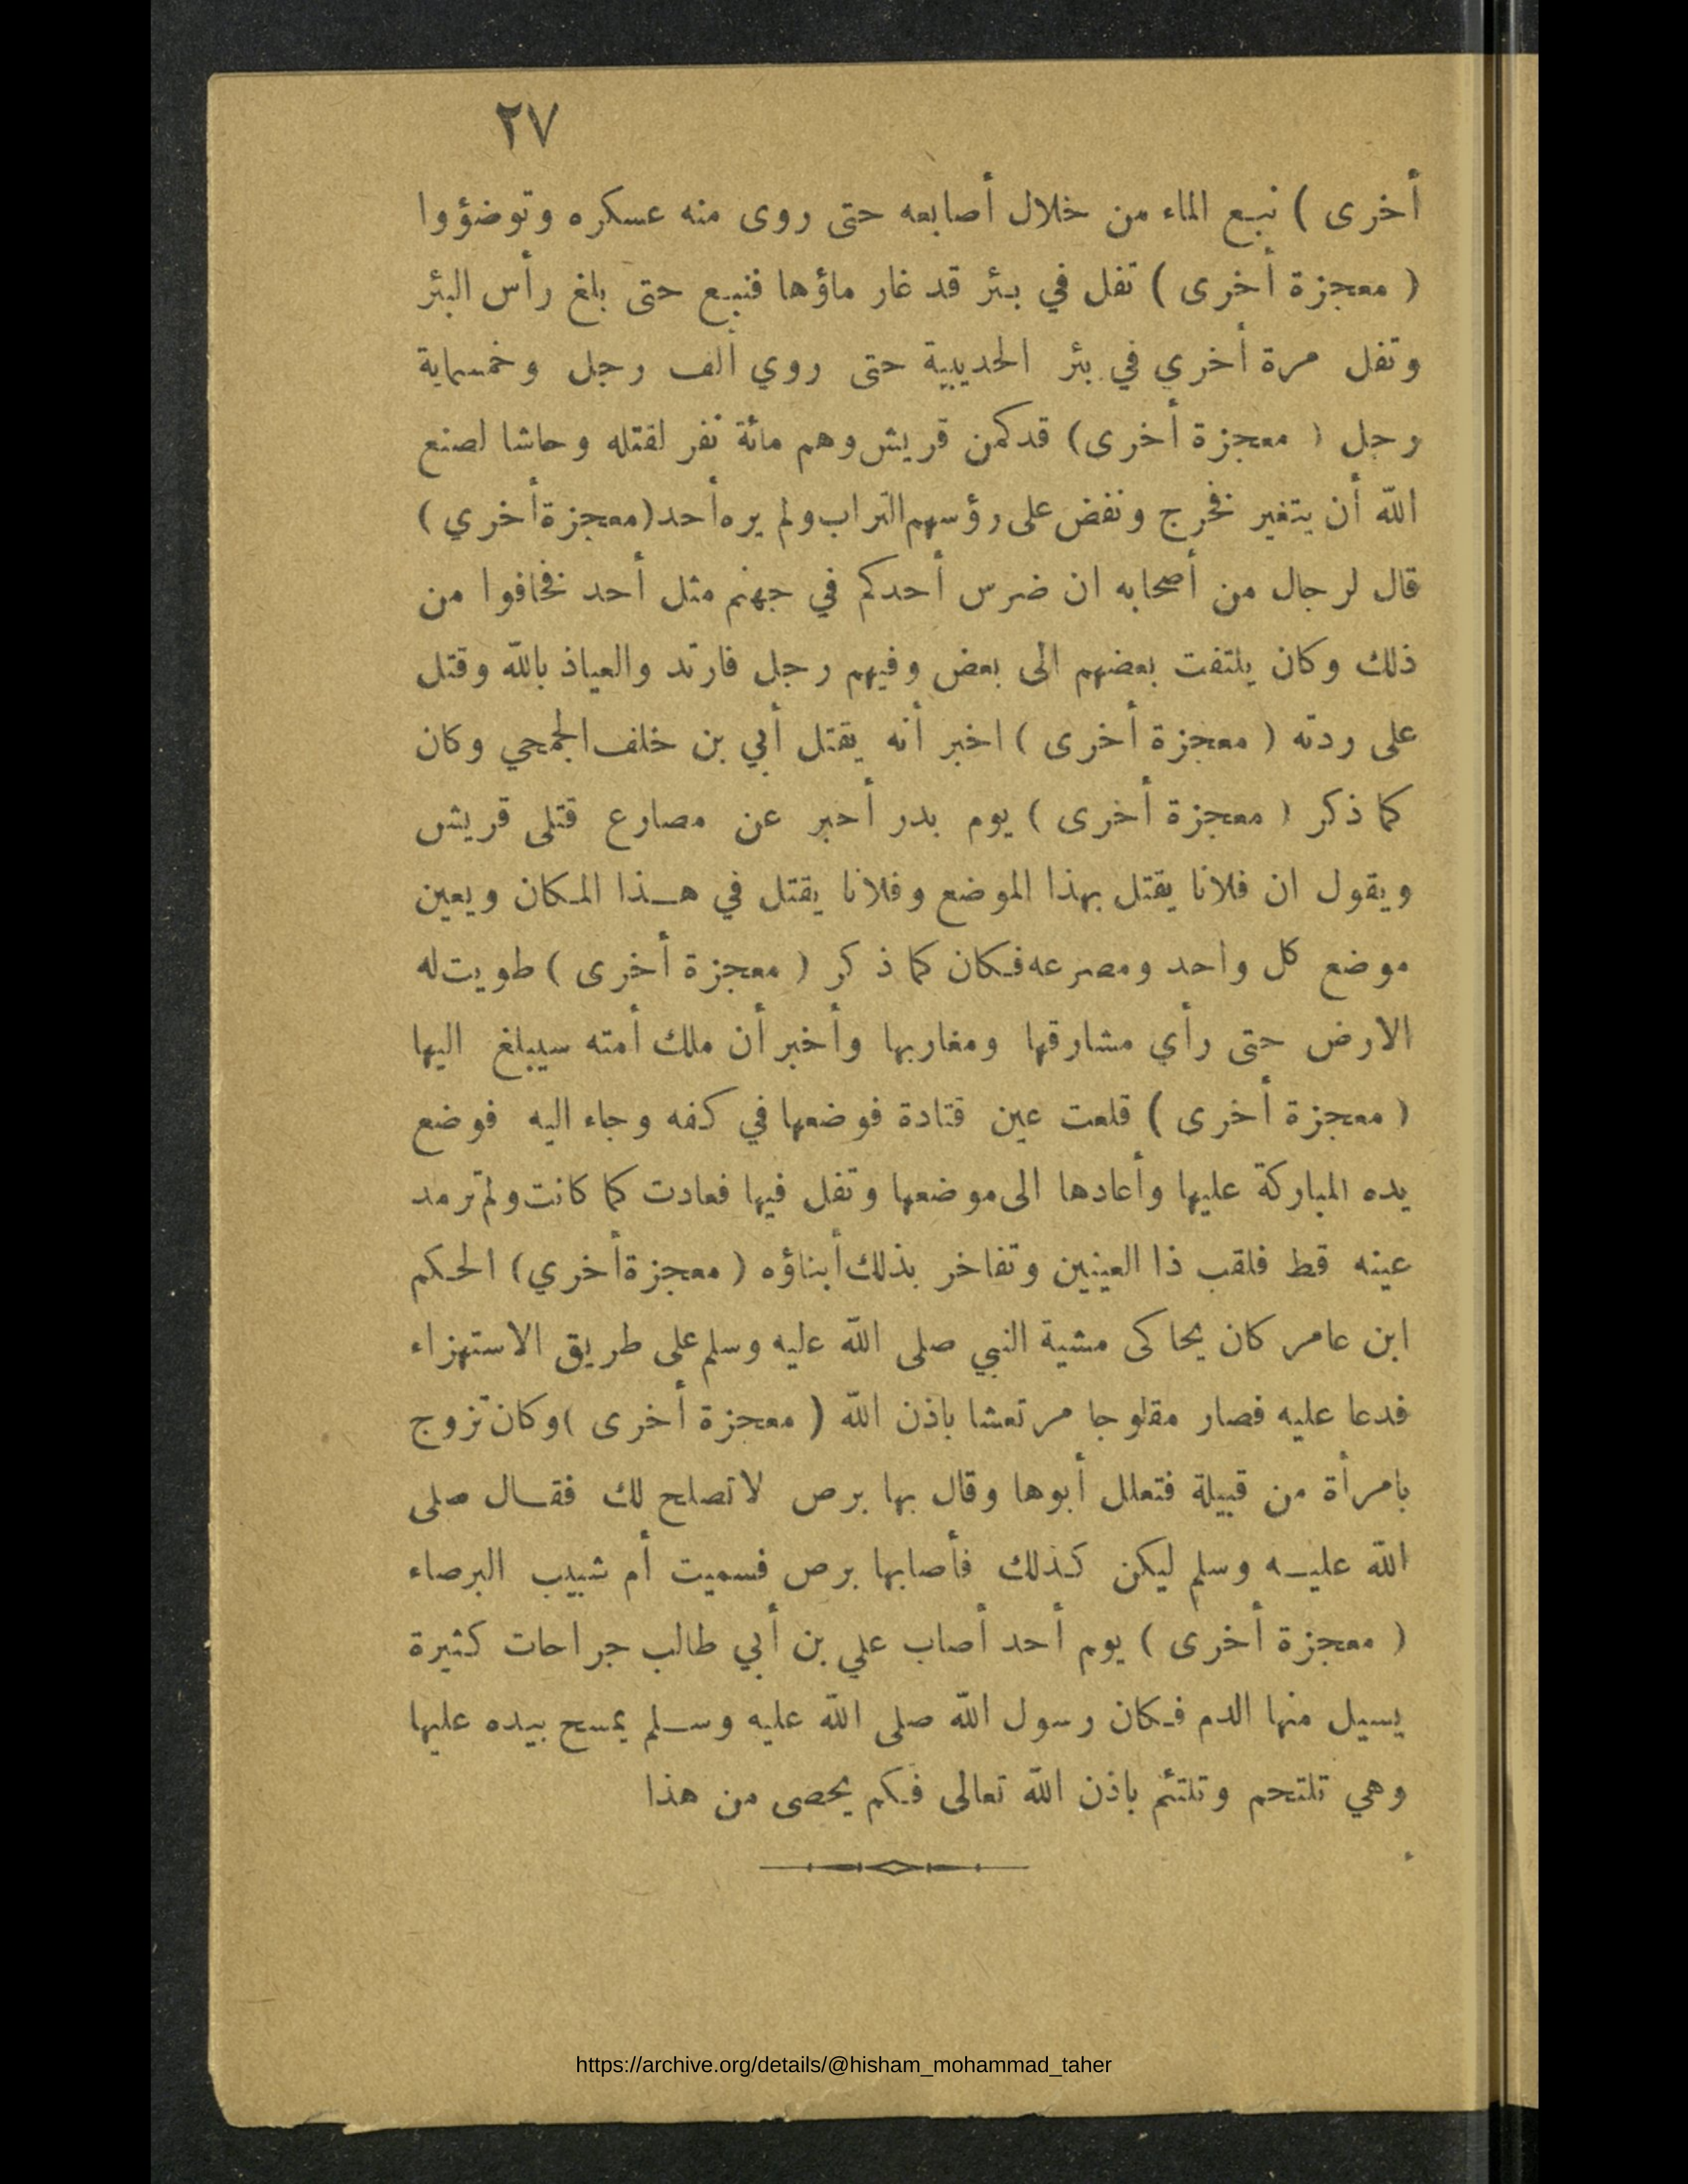 ٢٧
أخرى ) نبع الماء من خلال أصابعه حتى روى منه عسكره وتوضؤوا
( معجزة أخرى ) تفل في بئر قد غار ماؤها فنبع حتى بلغ رأس البئر
وتفل مرة أخري في بئر الحديبية حتى روي ألف رجل وخمسماية
رجل ( معجزة أخرى) قد كمن قريش وهم مائة نفر لقتله وحاشا لصنع
الله أن يتغير فخرج ونفض على رؤسهم التراب ولم يره أحد (معجزة أخري )
قال لرجال من أصحابه ان ضرس أحدكم في جهنم مثل أحد فخافوا من
ذلك وكان يلتفت بعضهم الى بعض وفيهم رجل فارتد والعياذ بالله وقتل
على ردته ( معجزة أخرى ) اخبر أنه يقتل أبي بن خلف الجمحي وكان
كما ذكر ( معجزة أخرى ) يوم بدر أخبر عن مصارع قتلى قريش
ويقول ان فلانا يقتل بهذا الموضع وفلانا يقتل في هذا المكان ويعين
موضع كل واحد ومصرعه فكان كما ذكر ( معجزة أخرى ) طويت له
الارض حتى رأي مشارقها ومغاربها وأخبر أن ملك أمته سيبلغ اليها
( معجزة أخرى ) قلعت عين قتادة فوضعها في كفه وجاء اليه فوضع
يده المباركة عليها وأعادها الى موضعها وتفل فيها فعادت كما كانت ولم ترمد
عينه قط فلقب ذا العينين وتفاخر بذلك أبناؤه ( معجزة أخري ) الحكم
ابن عامر كان يحاكى مشية النبي صلى الله عليه وسلم على طريق الاستهزاء
فدعا عليه فصار مفلوجا مرتعشا باذن الله ( معجزة أخرى ) وكان تزوج
بامرأة من قبيلة فتعلل أبوها وقال بها برص لا تصلح لك فقال صلى
الله عليه وسلم ليكن كذلك فأصابها برص فسميت أم شبيب البرصاء
( معجزة أخرى ) يوم أحد أصاب علي بن أبي طالب جراحات كثيرة
يسيل منها الدم فكان رسول الله صلى الله عليه وسلم يمسح بيده عليها
وهي تلتحم وتلتئم باذن الله تعالى فكم يحصى من هذا
https://archive.org/details/@hisham_mohammad_taher